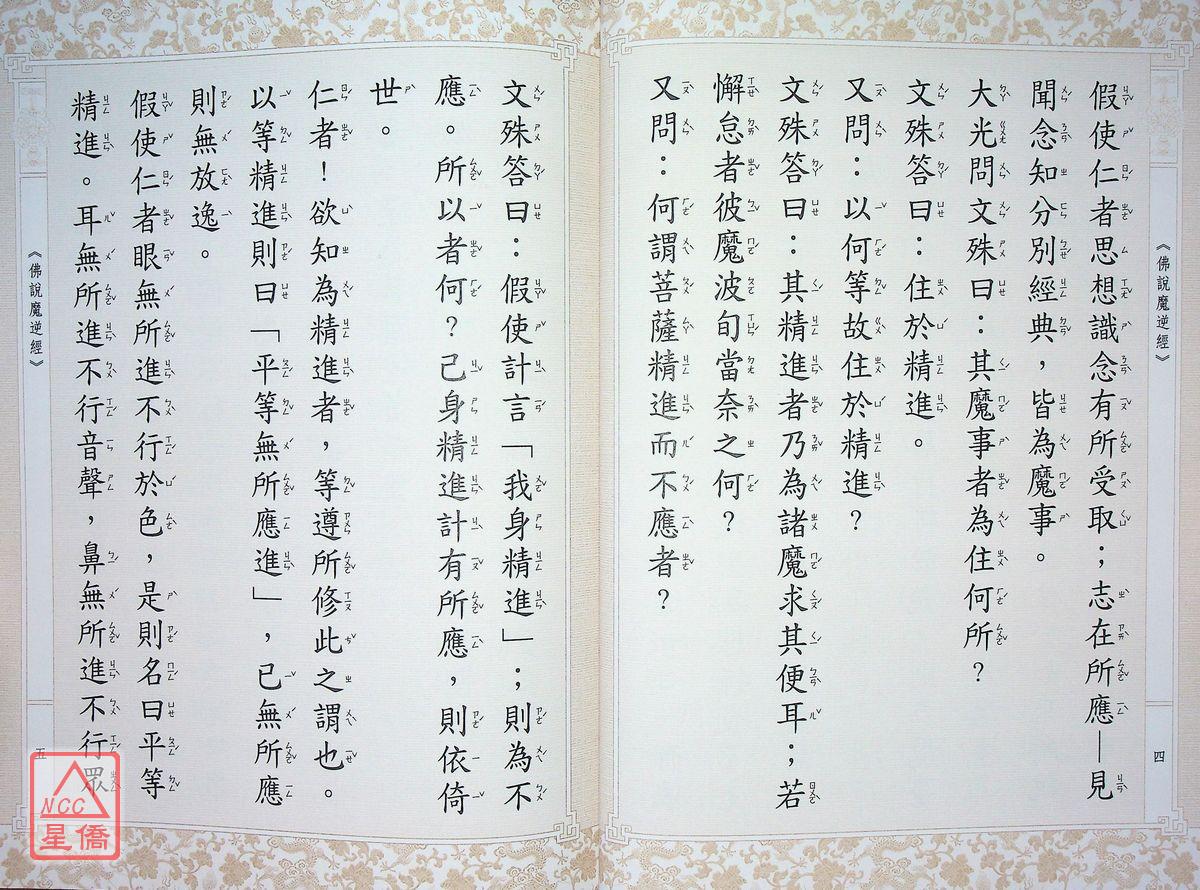 《佛說魔逆經》
四
假使仁者思想識念有所受取；志在所應—見
聞念知分別經典，皆為魔事。
大光問文殊曰：其魔事者為住何所？
文殊答曰：住於精進。
又問：以何等故住於精進？
文殊答曰：其精進者乃為諸魔求其便耳；若
懈怠者彼魔波旬當奈之何？
又問：何謂菩薩精進而不應者？
文殊答曰：假使計言「我身精進」；則為不
應。所以者何？己身精進計有所應，則依倚
世。
仁者！欲知為精進者，等遵所修此之謂也。
以等精進則曰「平等無所應進」，已無所應
則無放逸。
假使仁者眼無所進不行於色，是則名曰平等
精進。耳無所進不行音聲，鼻無所進不行眾
《佛說魔逆經》
五
NCC
星僑